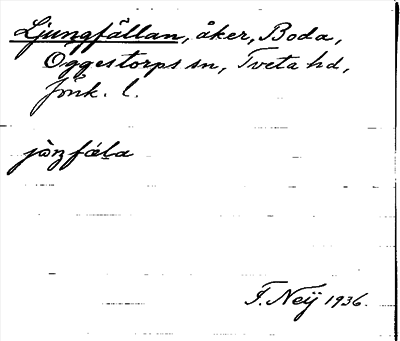 Ljungfällan, åker, Boda,
Öggestorps sn, Tveta hd,
Jönk. l.
F. Neij 1936.